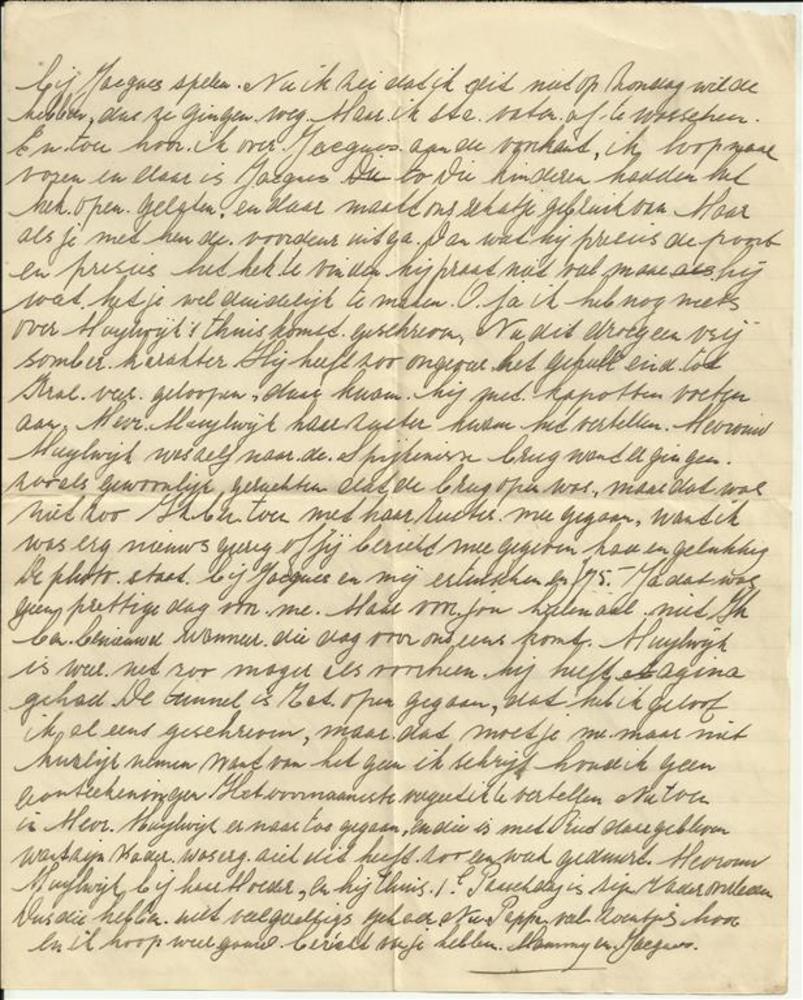 bij Jacques spelen. Nu ik zei dat ik dit niet op Zondag wilde
hebben, dus ze gingen weg. Maar ik sta vaten af te wasschen.
En toe hoor ik over Jacques aan de voorkant, ik loop naar
voren en daar is Jacques Die to die kinderen hadden het
hek open gelaten, en daar maakt ons schatje gebruik van Maar
als je met hem de voordeur uitga. dan wat hij precies de poort
en precies het hek te vinden hij praat niet veel maar als hij
wat het je wel duidelijk te maken. O. ja ik heb nog niets
over Muylwijk's thuiskomst geschreven, Nu dit droeg een vrij
somber karakter Hij heeft zoo ongeveer het geheele eind tot
veer geloopen, daar kwam hij met kapotten voeten
aan. Mevr. Muylwijk haar zuster kwam het vertellen. Mevrouw
Muylwijk was zelf naar de Spijkenisse brug want er gingen
zooals gewoonlijk geruchten dat de brug open was, maar dat was
niet zoo Ik ben toen met haar zuster mee gegaan, want ik
was erg nieuwsgierig of jij bericht mee gegeven had en gelukkig
De photo staat bij Jacques en mij ertusschen en 75.- Ja dat was
geen prettige dag voor me. Maar voor jou heelemaal niet Ik
ben benieuwd wanneer die dag voor ons eens komt. Muylwijk
is weer net zoo mager als voorheen hij heeft agina
gehad De tunnel is Zat. open gegaan, dat heb ik geloof
ik al eens geschreven, maar dat moet je me maar niet
kwalijk nemen Want van het geen ik schrijf houd ik geen
aanteekeningen Het voornaamste vergeet ik te vertellen Nu toen
is Mevr. Muylwijk er naar toe gegaan, en die is met Riet daar gebleven
want zijn Vader was erg ziek dit heeft zoo een week geduurd. Mevrouw
Muylwijk bij haar Moeder, en hij thuis. 1e Paaschdag is zijn Vader overleden
Dus die hebben niet veel gezelligs gehad Nu Pappy veel zoentjes hoor
en ik hoop weer gauw bericht van je hebben. Mammy en Jacques.